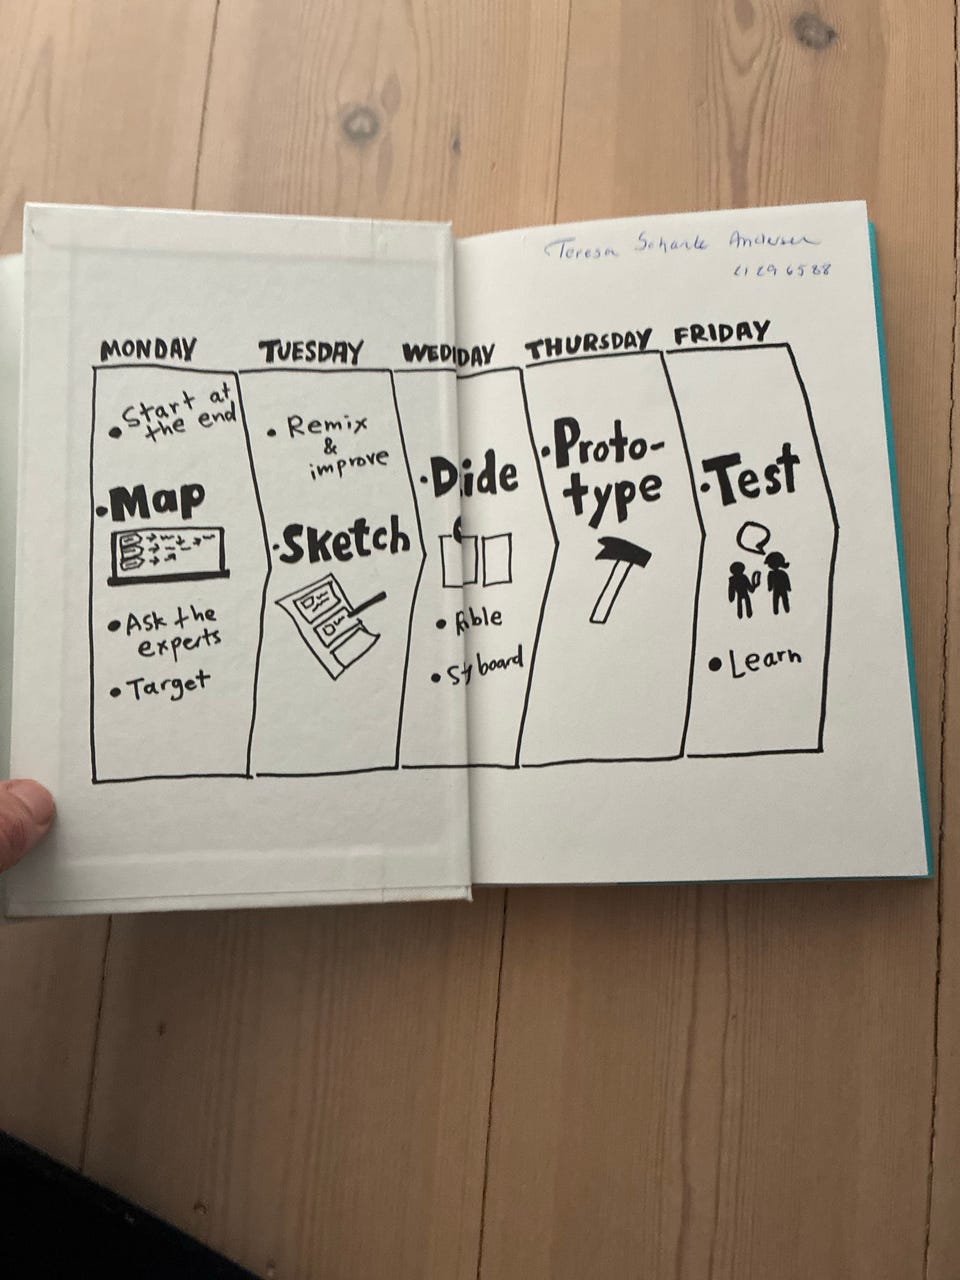 Teresa Scharle Andersen
21 29 65 88
MONDAY
• Start at
the end
• Map
• Ask the
experts
• Target
TUESDAY
• Remix
&
improve
• Sketch
WEDDAY
• Dide
• Rble
• Styboard
THURSDAY
• Proto-
type
FRIDAY
• Test
• Learn